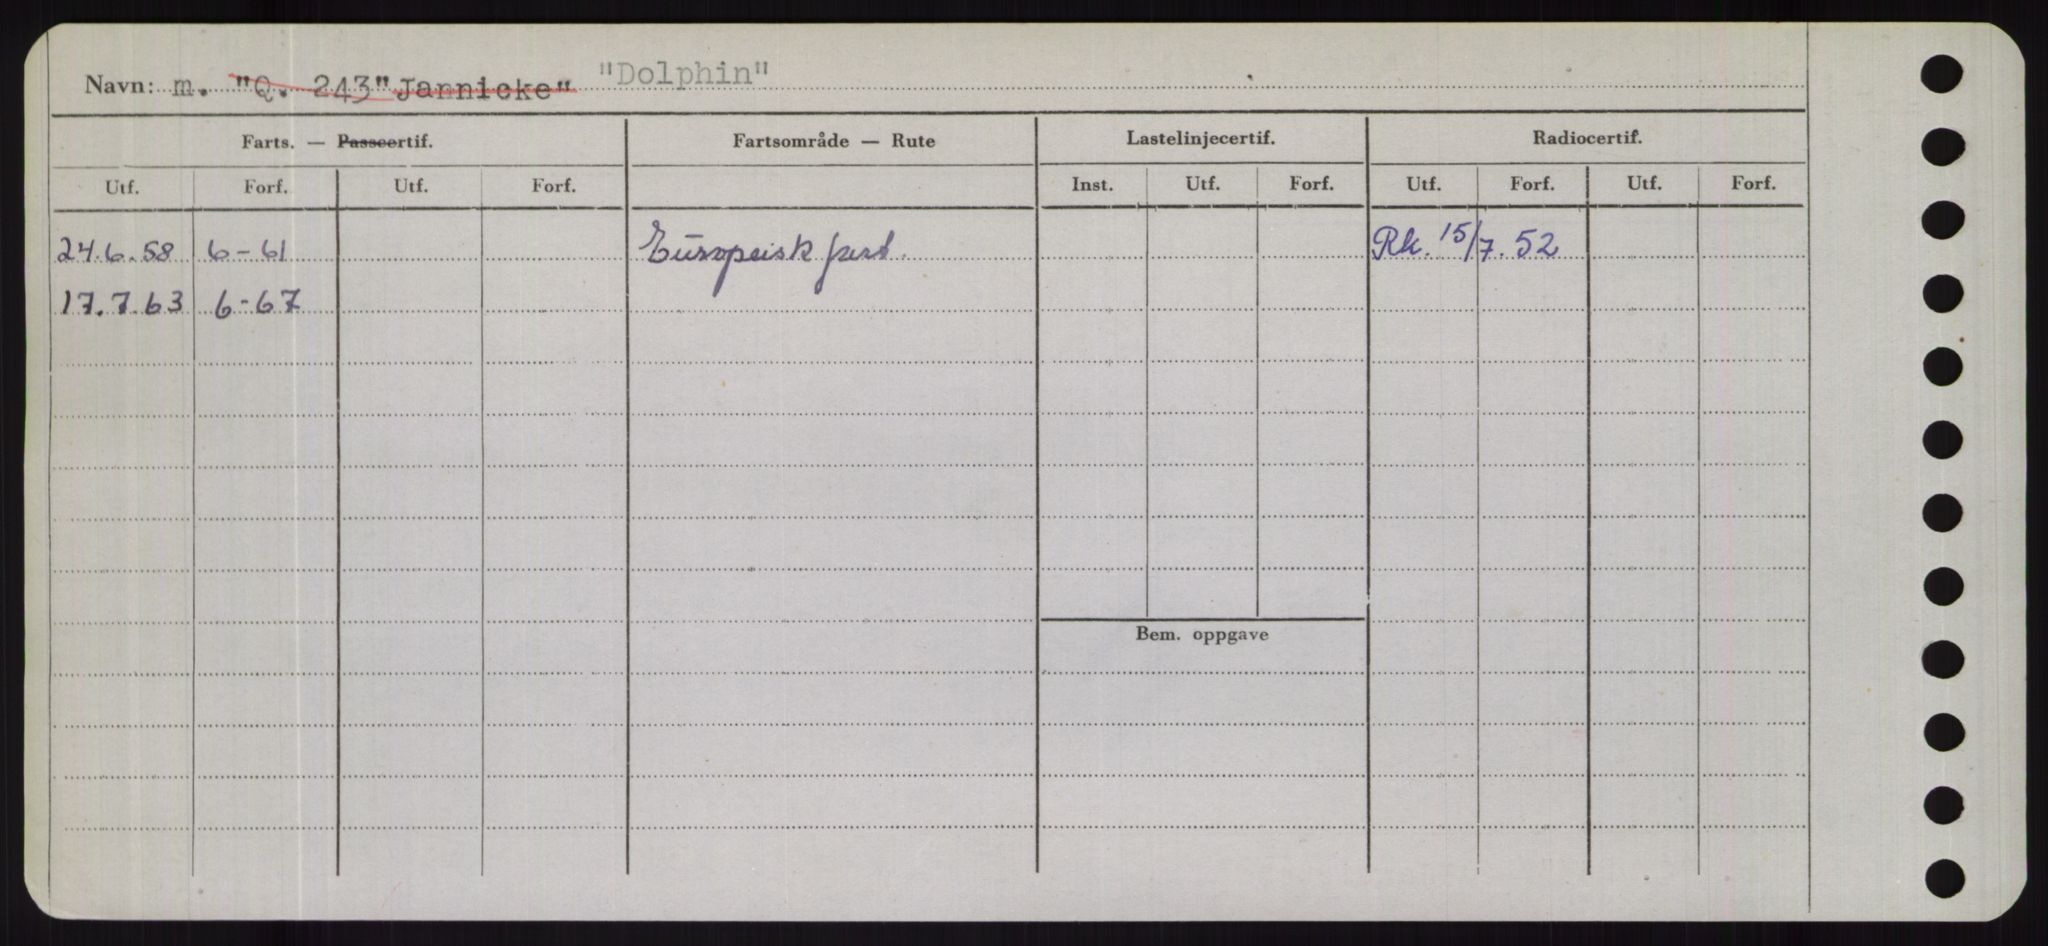 Navn: m. "Q. 243" Jannicke" "Dolphin"
Farts. — Passcertif. Fartsområde — Rute Lastelinjecertif. Radiocertif.
Utf. Forf. Utf. Forf. Inst. Utf. Forf. Utf. Forf. Utf. Forf.
24.6.58 6-61 Europeisk fart. Rk. 15/7.52
17.7.63 6-67
Bem. oppgave